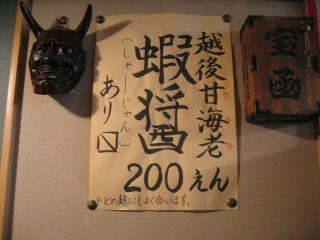 越後甘海老
蝦醤
(しゃーじゃん)
あり〼
200えん
※どの麺にもよく合います。
宝函